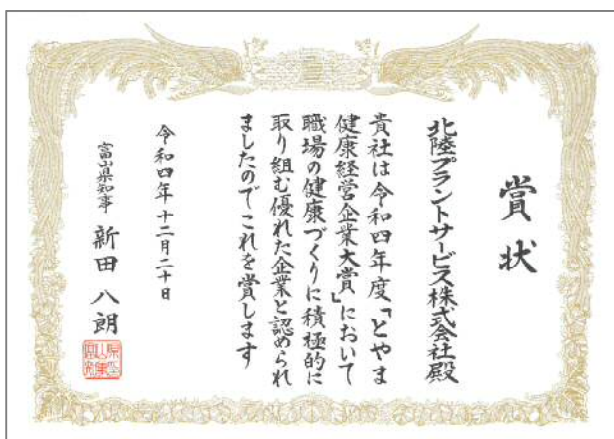 賞状
北陸プラントサービス株式会社殿
貴社は令和四年度「とやま
健康経営企業大賞」において
職場の健康づくりに積極的に
取り組む優れた企業と認められ
ましたのでこれを賞します
令和四年十二月二十日
富山県知事 新田八朗